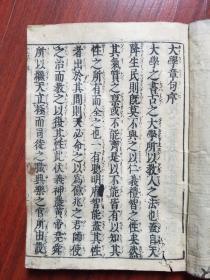 大學章句序
大學之書古之大學所以教人之法也蓋自天
降生民則既莫不與之以仁義禮智之性矣然
其氣質之稟或不能齊是以不能皆有以知其
性之所有而全之也一有聰明睿智能盡其性
者出於其間則天必命之以爲億兆之君師使
之治而教之以復其性此伏羲神農黃帝堯舜
所以繼天立極而司徒之職典樂之官所由設